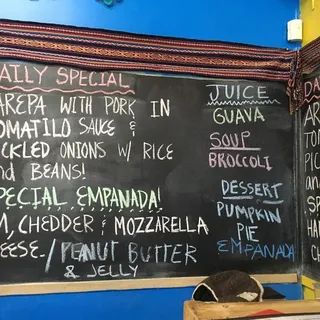 DAILY SPECIAL
AREPA WITH PORK IN
TOMATILO SAUCE &
PICKLED ONIONS W/ RICE
and BEANS!
SPECIAL EMPANADA!
HAM, CHEDDER & MOZZARELLA
CHEESE. / PEANUT BUTTER
& JELLY
JUICE
GUAVA
SOUP
BROCCOLI
DESSERT
PUMPKIN
PIE
EMPANADA